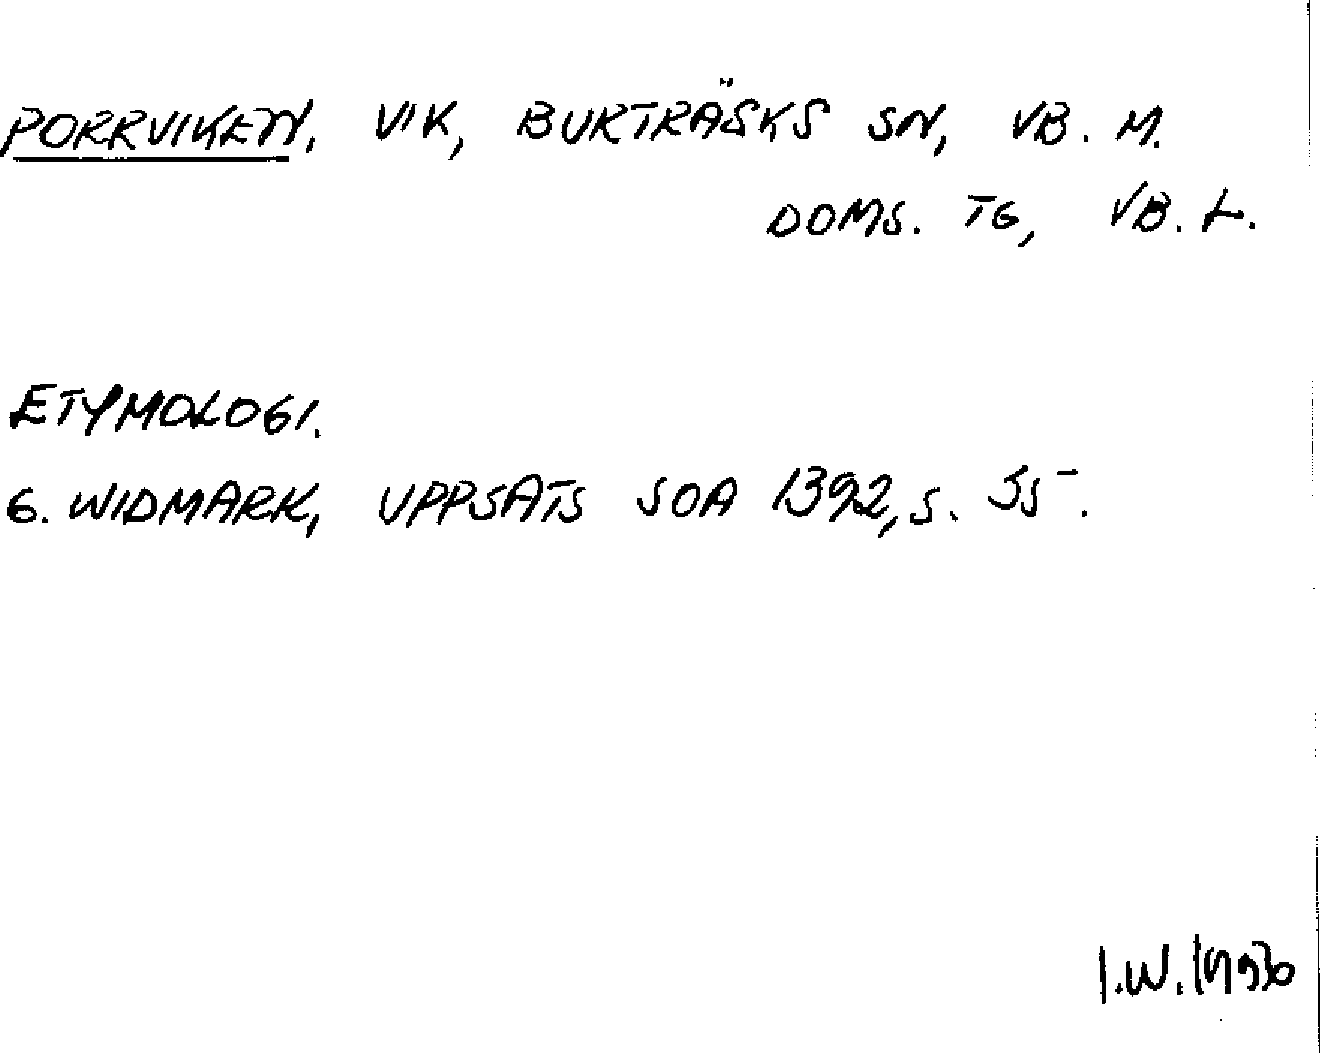 PORRVIKEN, VIK, BURTRÄSKS SN, VB. M.
DOMS. TG, VB. L.
ETYMOLOGI.
G. WIDMARK, UPPSATS SOA 1392, S. 35.
I.W.